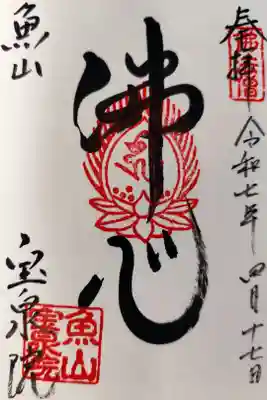 奉拝
令和七年 四月十七日
佛心
魚山
宝泉院
魚山
宝泉院